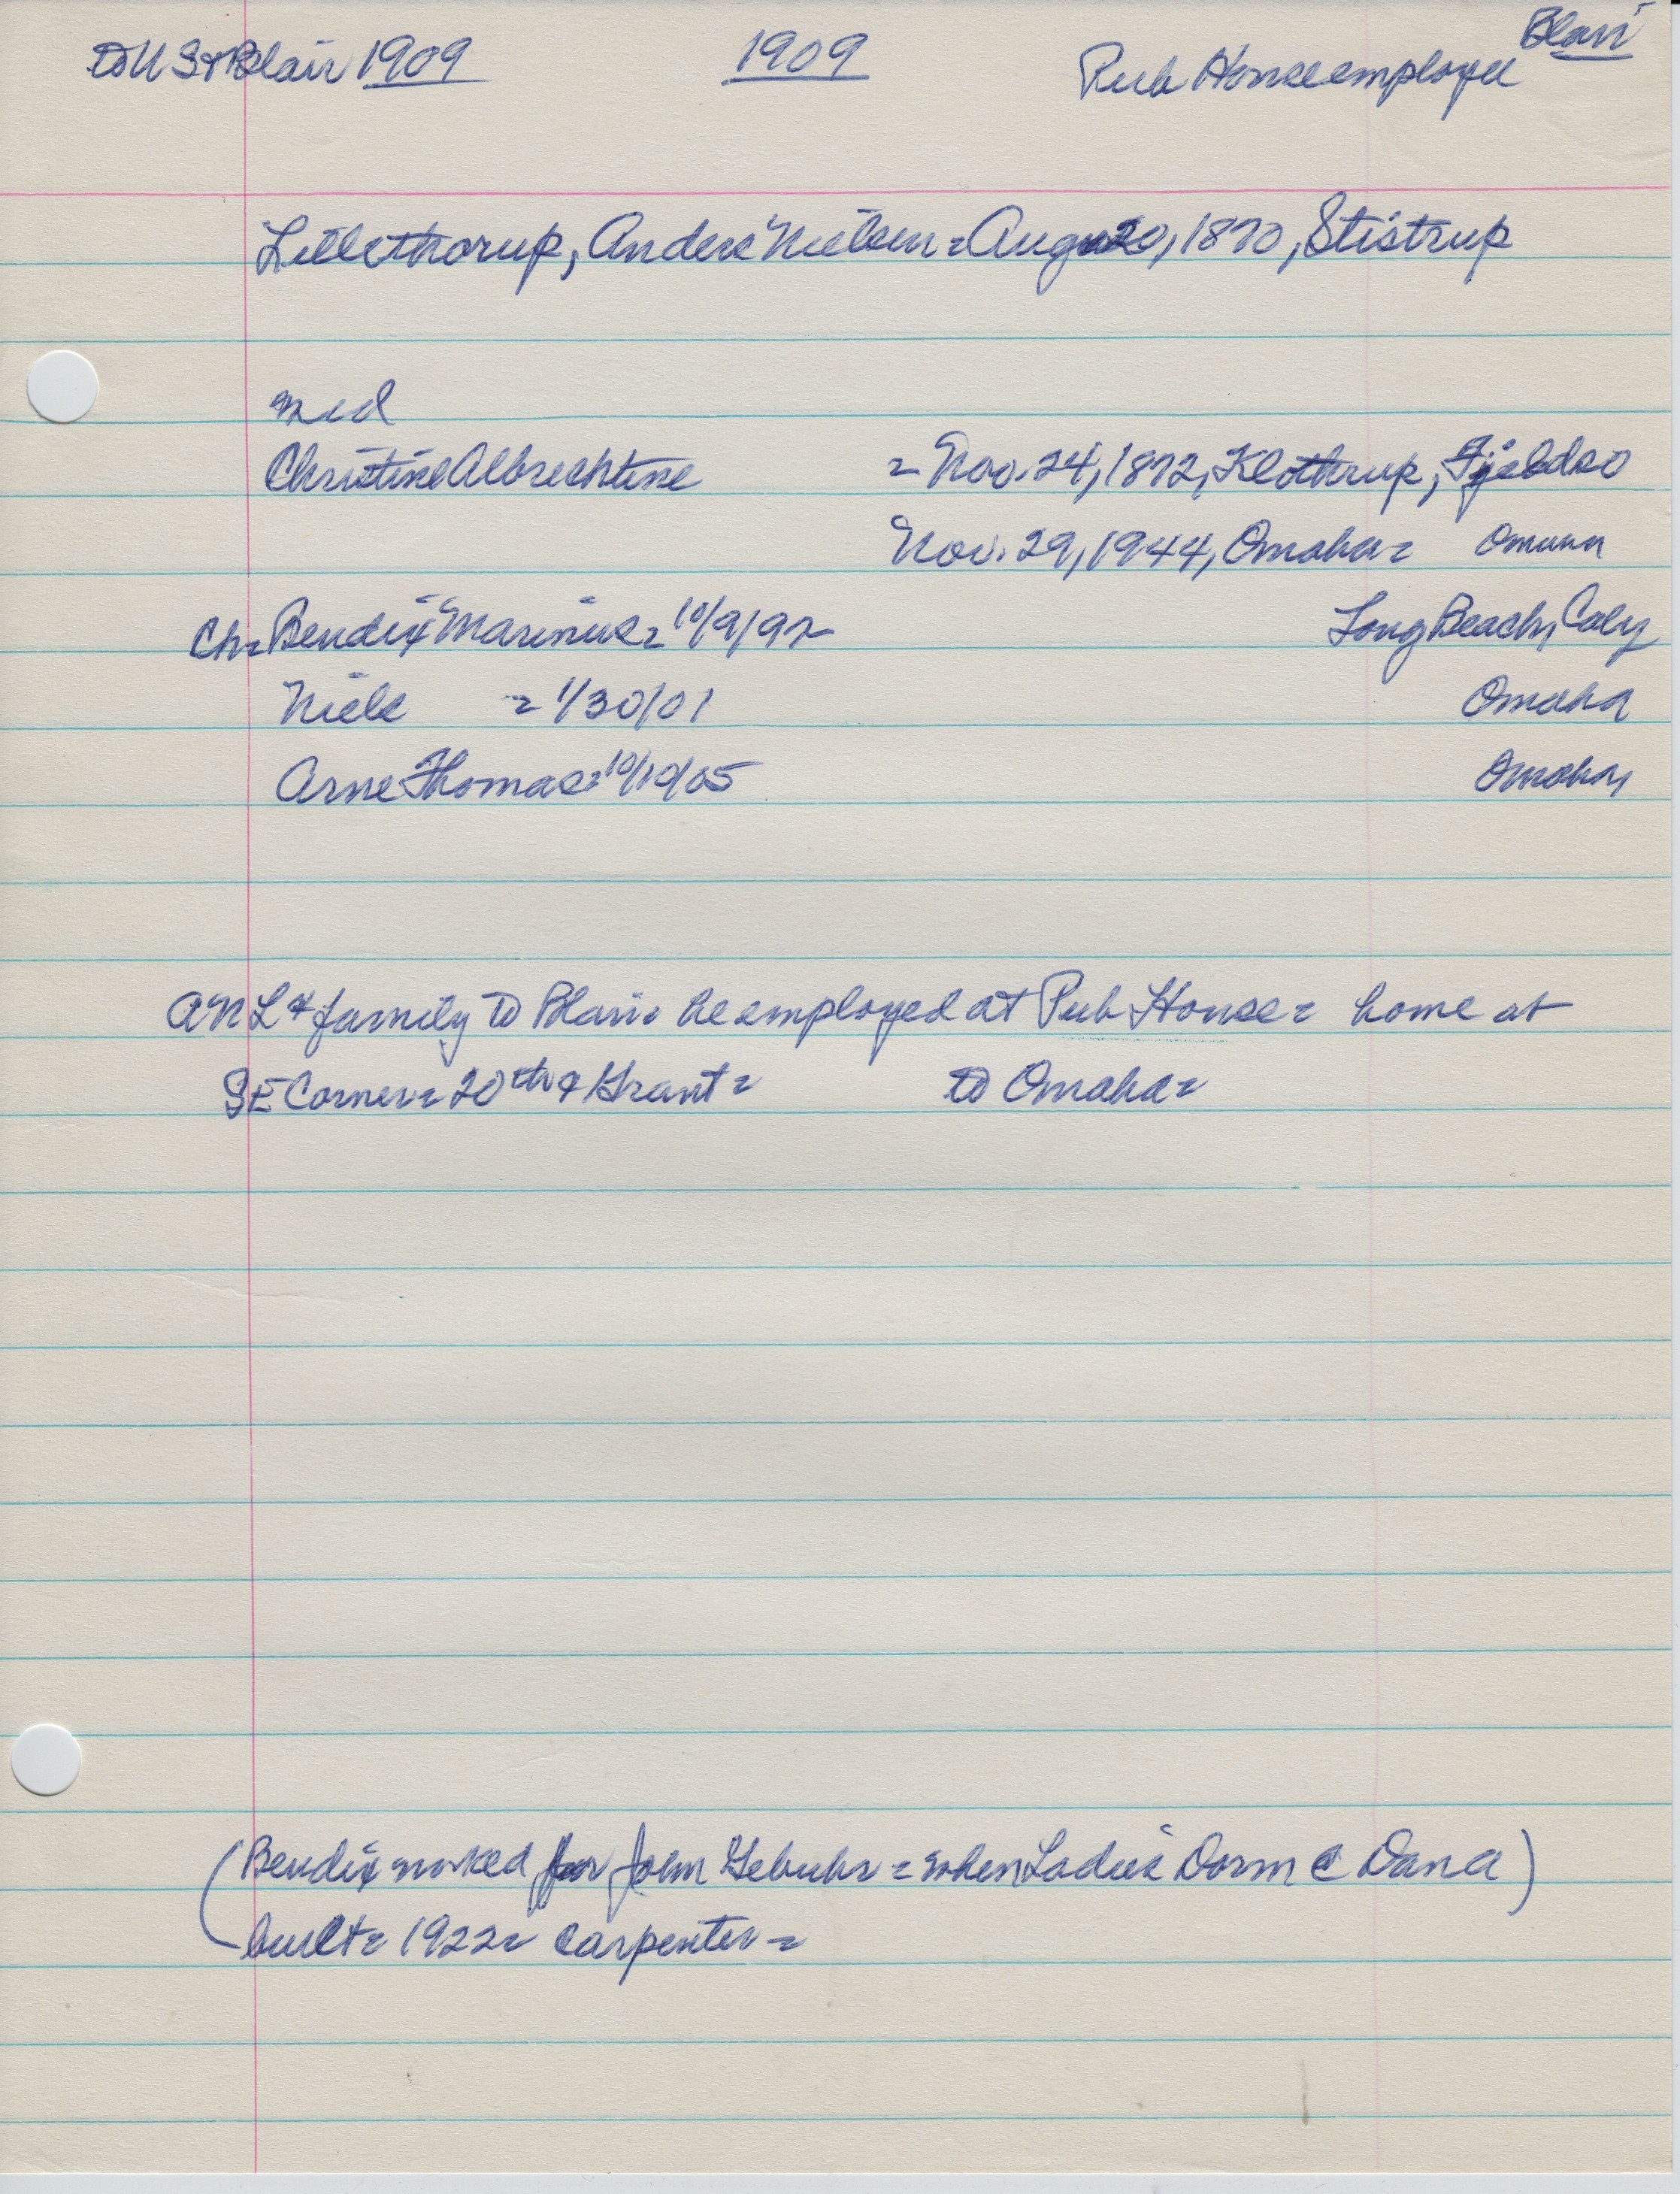 to US & Blair 1909 1909 Pub House employee Blair
Lillethorup, Anders Nielsen = Aug 20, 1870, Stistrup
med
Christine Albrechtine = Nov. 24, 1872, Klothrup, Fjeldso
Nov. 29, 1944, Omaha =
Ch = Bendix Marinus = 10/9/97 Long Beach, Caly
Niels = 1/30/01 Omaha
Arne Thomas = 10/10/05 Omaha,
ANL & family to Blair = he employed at Pub House = home at
SE Corner = 20th & Grant = to Omaha =
(Bendix worked for John Gebuhr = when Ladies Dorm @ Dana)
built = 1922 = carpenter =